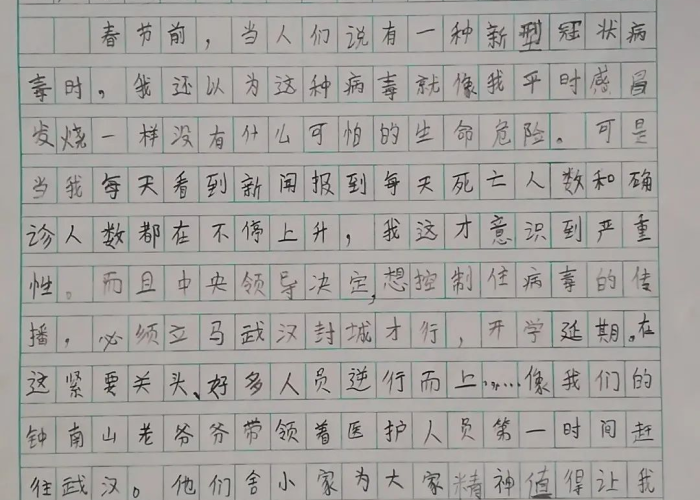 春节前，当人们说有一种新型冠状病
毒时，我还以为这种病毒就像我平时感冒
发烧一样没有什么可怕的生命危险。可是
当我每天看到新闻报到每天死亡人数和确
诊人数都在不停上升，我这才意识到严重
性。而且中央领导决定，想控制住病毒的传
播，必须立马武汉封城才行，开学延期。在
这紧要关头、好多人员逆行而上……像我们的
钟南山老爷爷带领着医护人员第一时间赶
往武汉。他们舍小家为大家精神值得让我